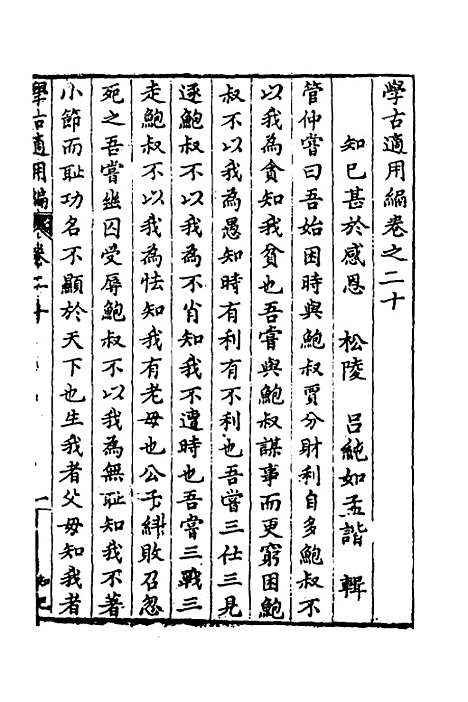 學古適用編卷之二十
知已甚於感恩　松陵　呂純如孟諧　輯
管仲嘗曰吾始困時與鮑叔賈分財利自多鮑叔不
以我為貪知我貧也吾嘗與鮑叔謀事而更窮困鮑
叔不以我為愚知時有利有不利也吾嘗三仕三見
逐鮑叔不以我為不肖知我不遭時也吾嘗三戰三
走鮑叔不以我為怯知我有老母也公子糾敗召忽
死之吾嘗幽囚受辱鮑叔不以我為無耻知我不著
小節而耻功名不顯於天下也生我者父母知我者
學古適用編　卷二十　一　知已